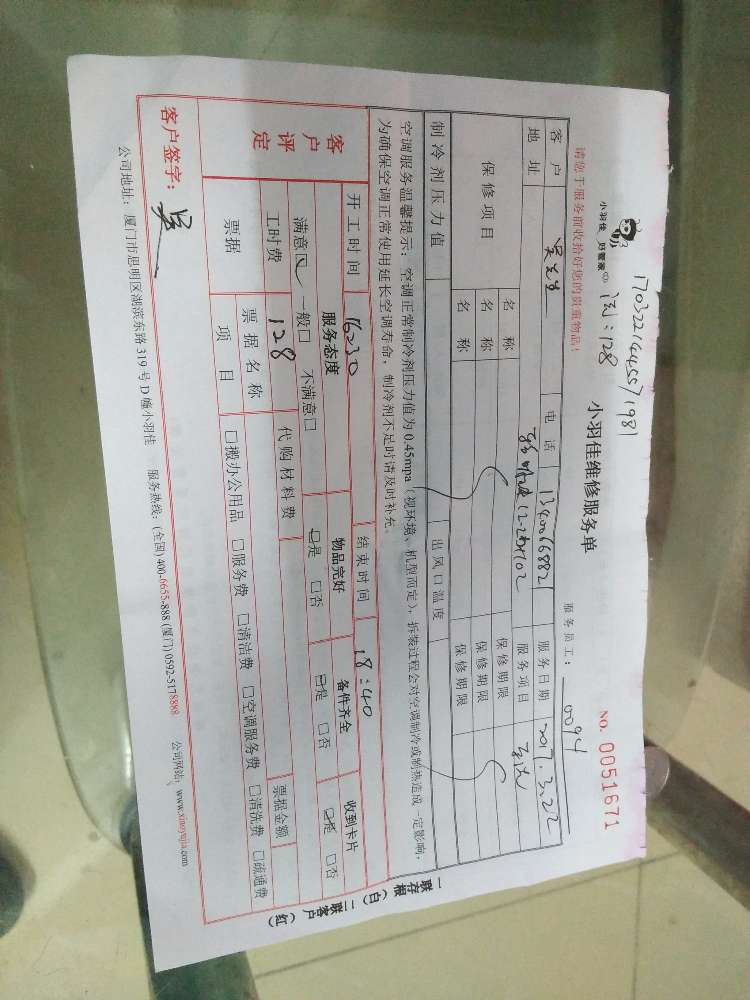 17032214455571981
小羽佳 好管家
沉:128
小羽佳维修服务单
NO. 0051671
请您于服务前收拾好您的贵重物品!
服务员工: 0094
客户 吴先生 电话 13400668821 服务日期 2017.3.22
地址 12-2栋1102 服务项目
保修项目 名称 保修期限
名称 保修期限
名称 保修期限
制冷剂压力值 出风口温度
空调服务温馨提示:空调正常制冷剂压力值为0.45mpa(视环境、机型而定),拆装过程会对空调制冷或制热造成一定影响,
为确保空调正常使用延长空调寿命,制冷剂不足时请及时补充。
开工时间 16:30 结束时间 18:40
客户评定 服务态度 物品完好 备件齐全 收到卡片
满意☑ 一般□ 不满意□ ☑是 □否 ☑是 □否 ☑是 □否
工时费 128 代购材料费
票据 票据名称 票据金额
项目 □搬办公用品 □服务费 □清洁费 □空调服务费 □清洗费 □疏通费
客户签字: 吴
公司地址:厦门市思明区湖滨东路319号D幢小羽佳 服务热线:(全国)400-6655-888 (厦门)0592-5178888 公司网站:www.xiaoyujia.com
一联存根(白) 二联客户(红)